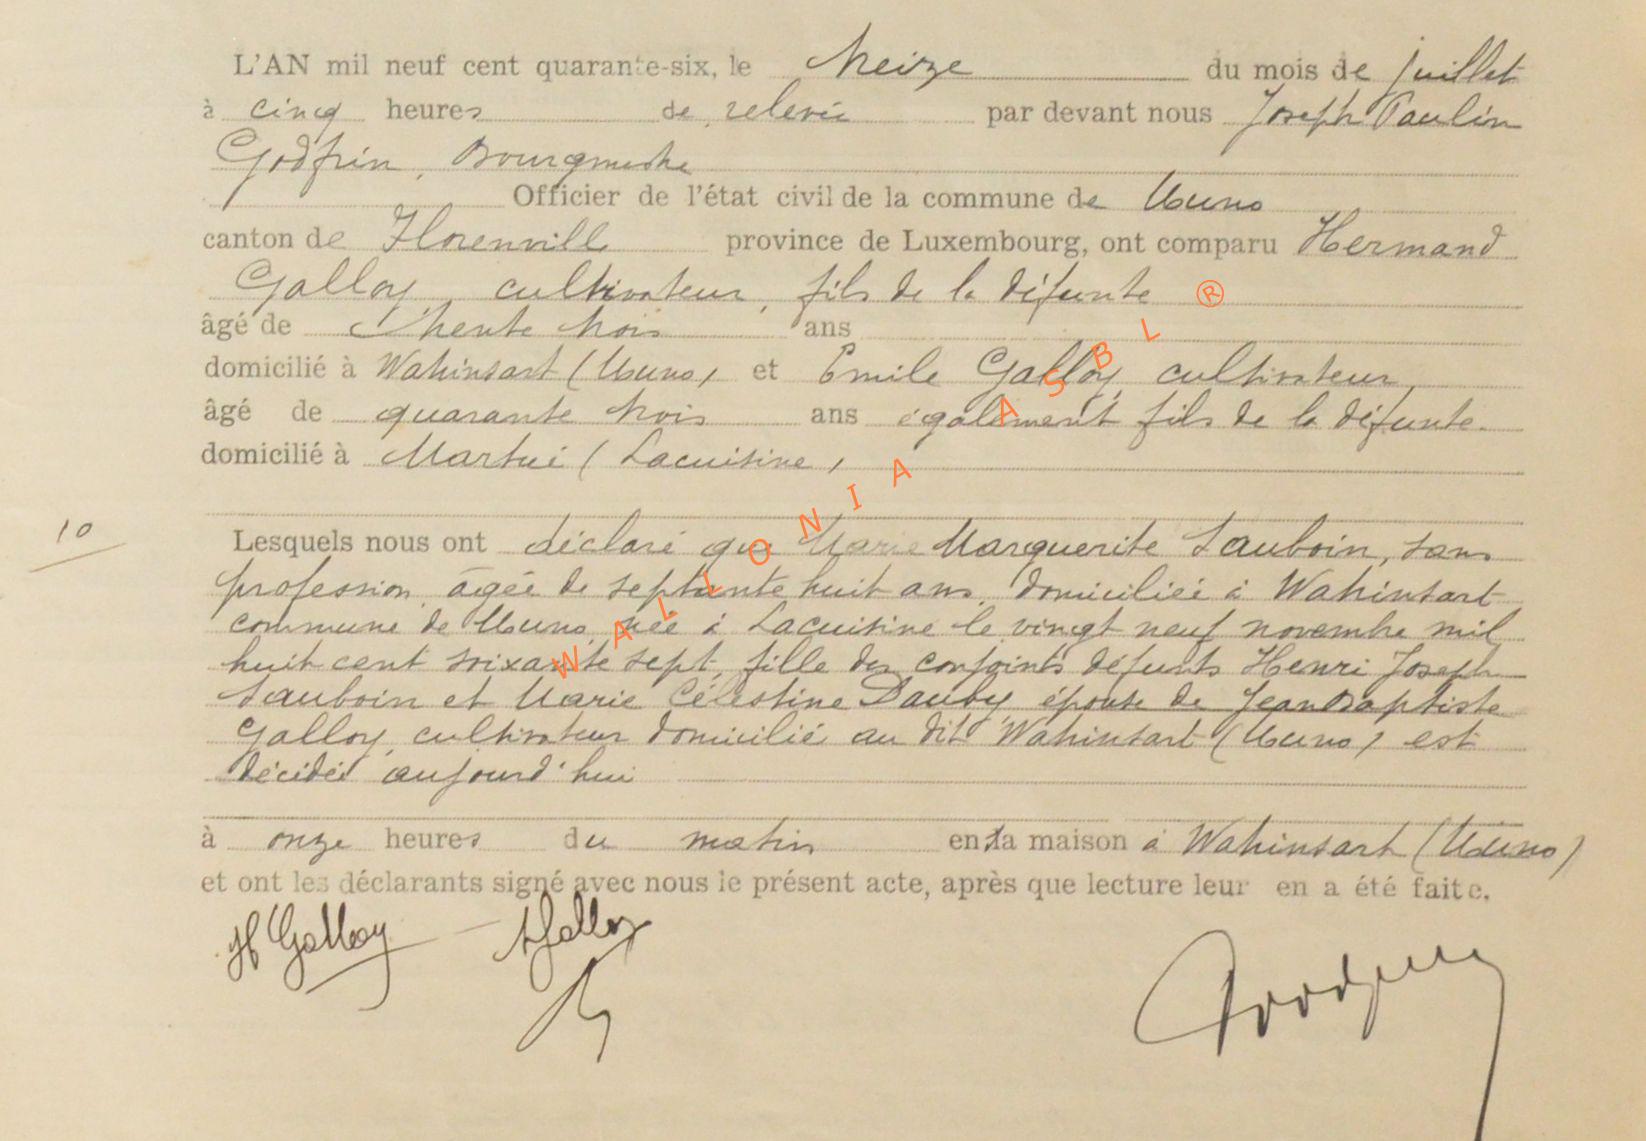 L'AN mil neuf cent quarante-six, le treize du mois de juillet
à cinq heures de relevée par devant nous Joseph Paulin
Godfrin, Bourgmestre
Officier de l'état civil de la commune de Muno
canton de Florenville province de Luxembourg, ont comparu Hermand
Galloy, cultivateur, fils de la défunte
âgé de trente trois ans
domicilié à Wahinsart (Muno) et Emile Galloy, cultivateur,
âgé de quarante trois ans également fils de la défunte.
domicilié à Martué (Lacuisine)
10
Lesquels nous ont déclaré que Marie Marguerite Sauboin, sans
profession, âgée de septante huit ans, domiciliée à Wahinsart
commune de Muno, née à Lacuisine le vingt neuf novembre mil
huit cent soixante sept, fille des conjoints défunts Henri Joseph
Sauboin et Marie Célestine Dauby, épouse de Jean Baptiste
Galloy, cultivateur domicilié au dit Wahinsart (Muno) est
décédée aujourd'hui
à onze heures du matin en sa maison à Wahinsart (Muno)
et ont les déclarants signé avec nous le présent acte, après que lecture leur en a été faite.
H Galloy Galloy
WALLONIA ASBL ®